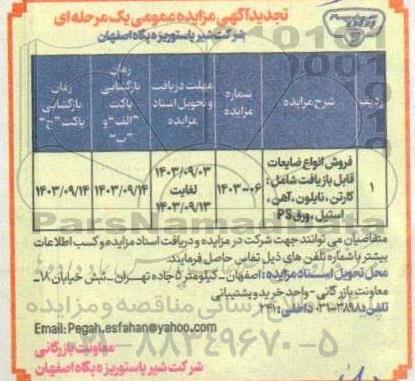 تجدید آگهی مزایده عمومی یک مرحله ای
شرکت شیر پاستوریزه پگاه اصفهان
ردیف
شرح مزایده
شماره مزایده
مهلت دریافت و تحویل اسناد مزایده
زمان بازگشایی پاکت "الف" و "ب"
زمان بازگشایی پاکت "ج"
۱
فروش انواع ضایعات
قابل بازیافت شامل :
کارتن ، نایلون ، آهن ،
استیل ، ورق PS
۱۴۰۳-۰۶
۱۴۰۳/۰۹/۰۳
لغایت
۱۴۰۳/۰۹/۱۳
۱۴۰۳/۰۹/۱۴
۱۴۰۳/۰۹/۱۴
متقاضیان می توانند جهت شرکت در مزایده و دریافت اسناد مزایده و کسب اطلاعات
بیشتر با شماره تلفن های ذیل تماس حاصل فرمایند.
محل تحویل اسناد مزایده : اصفهان - کیلومتر ۵ جاده تهران - نبش خیابان ۱۸ -
معاونت بازرگانی - واحد خرید و پشتیبانی
تلفن: ۳۸۹۸-۰۳۱ داخلی : ۲۴۱
Email: Pegah.esfahan@yahoo.com
معاونت بازرگانی
شرکت شیر پاستوریزه پگاه اصفهان
ParsNamadData
۰۲۱-۸۸۳۴۹۶۷۰-۵